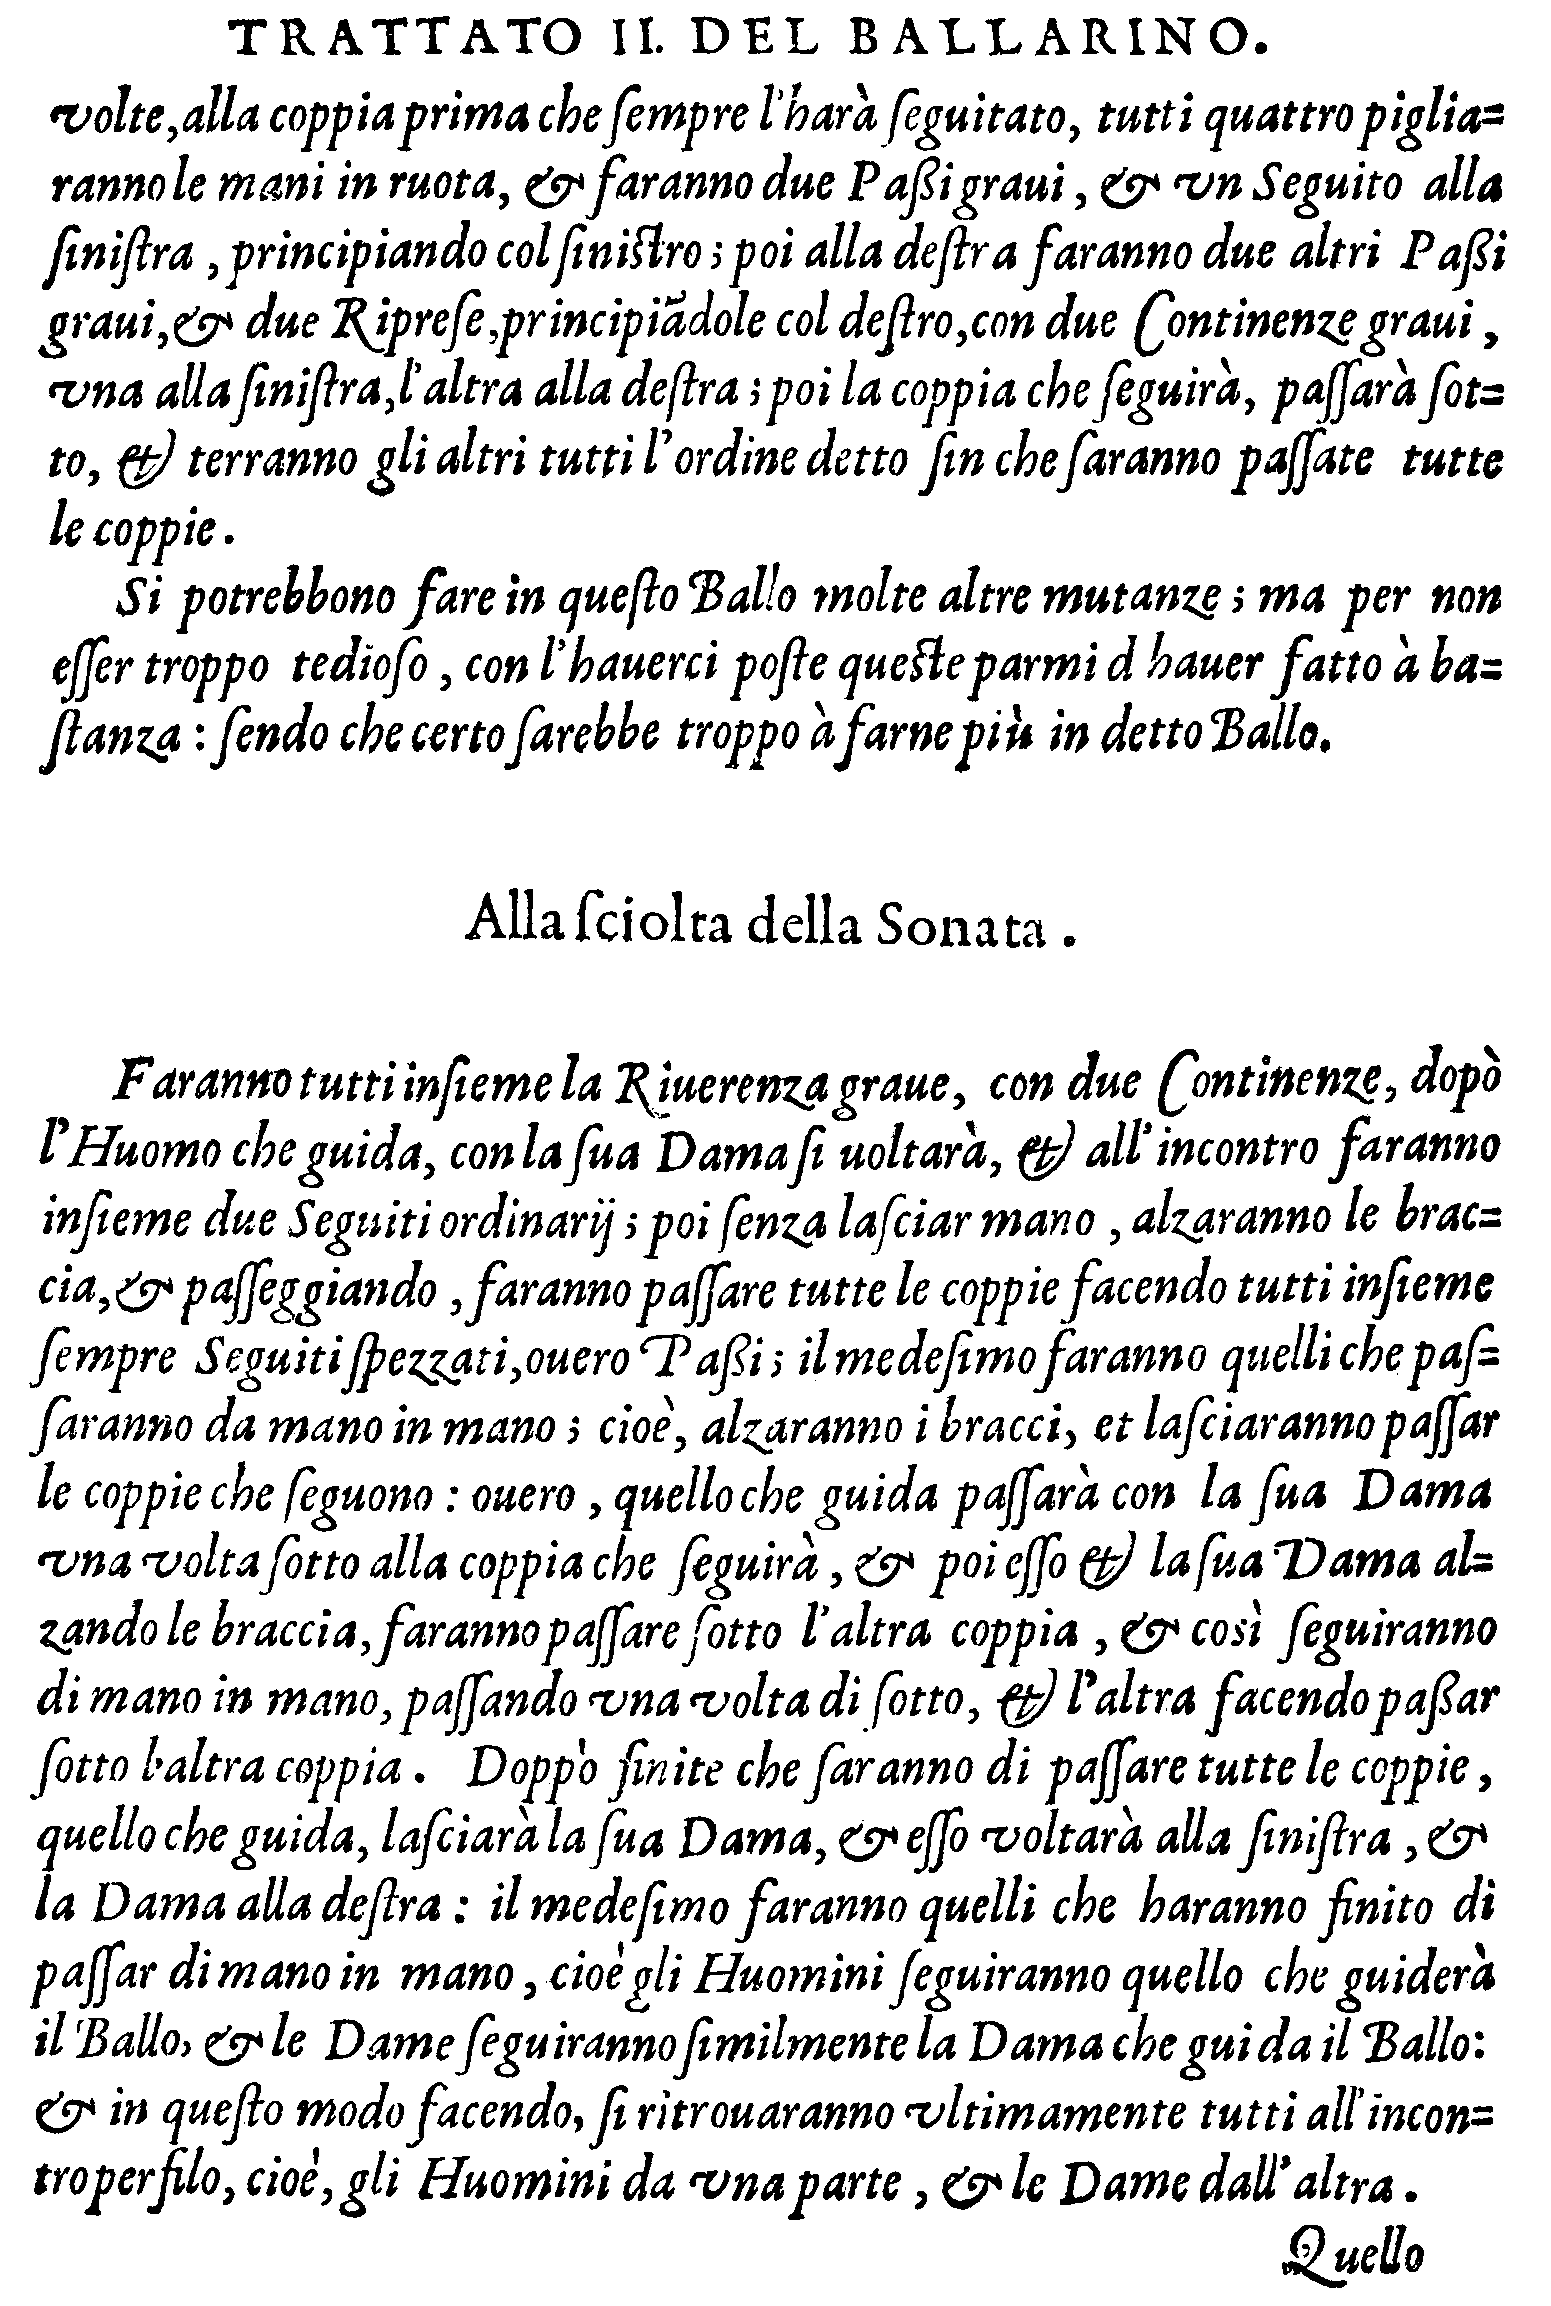 TRATTATO II. DEL BALLARINO.
volte, alla coppia prima che ſempre l'harà ſeguitato, tutti quattro piglia=
ranno le mani in ruota, & faranno due Paßi graui, & vn Seguito alla
ſiniſtra, principiando col ſiniſtro; poi alla deſtra faranno due altri Paßi
graui, & due Ripreſe, principiãdole col deſtro, con due Continenze graui,
vna alla ſiniſtra, l'altra alla deſtra; poi la coppia che ſeguirà, paſſarà ſot=
to, & terranno gli altri tutti l'ordine detto ſin che ſaranno paſſate tutte
le coppie.
Si potrebbono fare in queſto Ballo molte altre mutanze; ma per non
eſſer troppo tedioſo, con l'hauerci poſte queſte parmi d hauer fatto à ba=
ſtanza: ſendo che certo ſarebbe troppo à farne più in detto Ballo.
Alla ſciolta della Sonata.
Faranno tutti inſieme la Riuerenza graue, con due Continenze, dopò
l'Huomo che guida, con la ſua Dama ſi uoltarà, & all'incontro faranno
inſieme due Seguiti ordinarij; poi ſenza laſciar mano, alzaranno le brac=
cia, & paſſeggiando, faranno paſſare tutte le coppie facendo tutti inſieme
ſempre Seguiti ſpezzati, ouero Paßi; il medeſimo faranno quelli che paſ=
ſaranno da mano in mano; cioè, alzaranno i bracci, et laſciaranno paſſar
le coppie che ſeguono: ouero, quello che guida paſſarà con la ſua Dama
vna volta ſotto alla coppia che ſeguirà, & poi eſſo & la ſua Dama al=
zando le braccia, faranno paſſare ſotto l'altra coppia, & così ſeguiranno
di mano in mano, paſſando vna volta di ſotto, & l'altra facendo paßar
ſotto l'altra coppia. Doppò finite che ſaranno di paſſare tutte le coppie,
quello che guida, laſciarà la ſua Dama, & eſſo voltarà alla ſiniſtra, &
la Dama alla deſtra: il medeſimo faranno quelli che haranno finito di
paſſar di mano in mano, cioè gli Huomini ſeguiranno quello che guiderà
il Ballo, & le Dame ſeguiranno ſimilmente la Dama che guida il Ballo:
& in queſto modo facendo, ſi ritrouaranno vltimamente tutti all'incon=
tro per filo, cioè, gli Huomini da vna parte, & le Dame dall'altra.
Quello